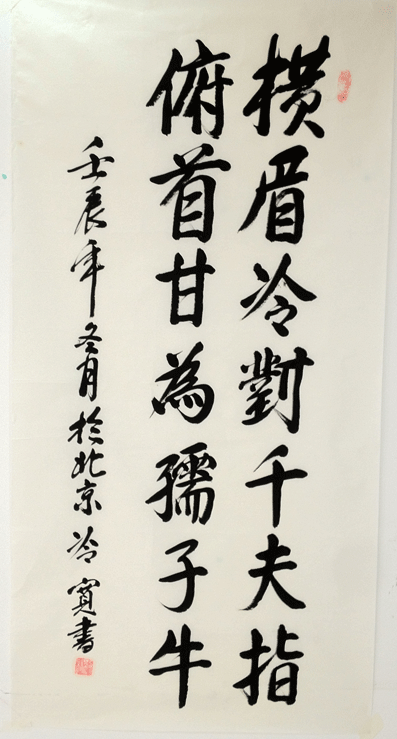 横眉冷對千夫指
俯首甘為孺子牛
壬辰年冬月於北京冷寬書